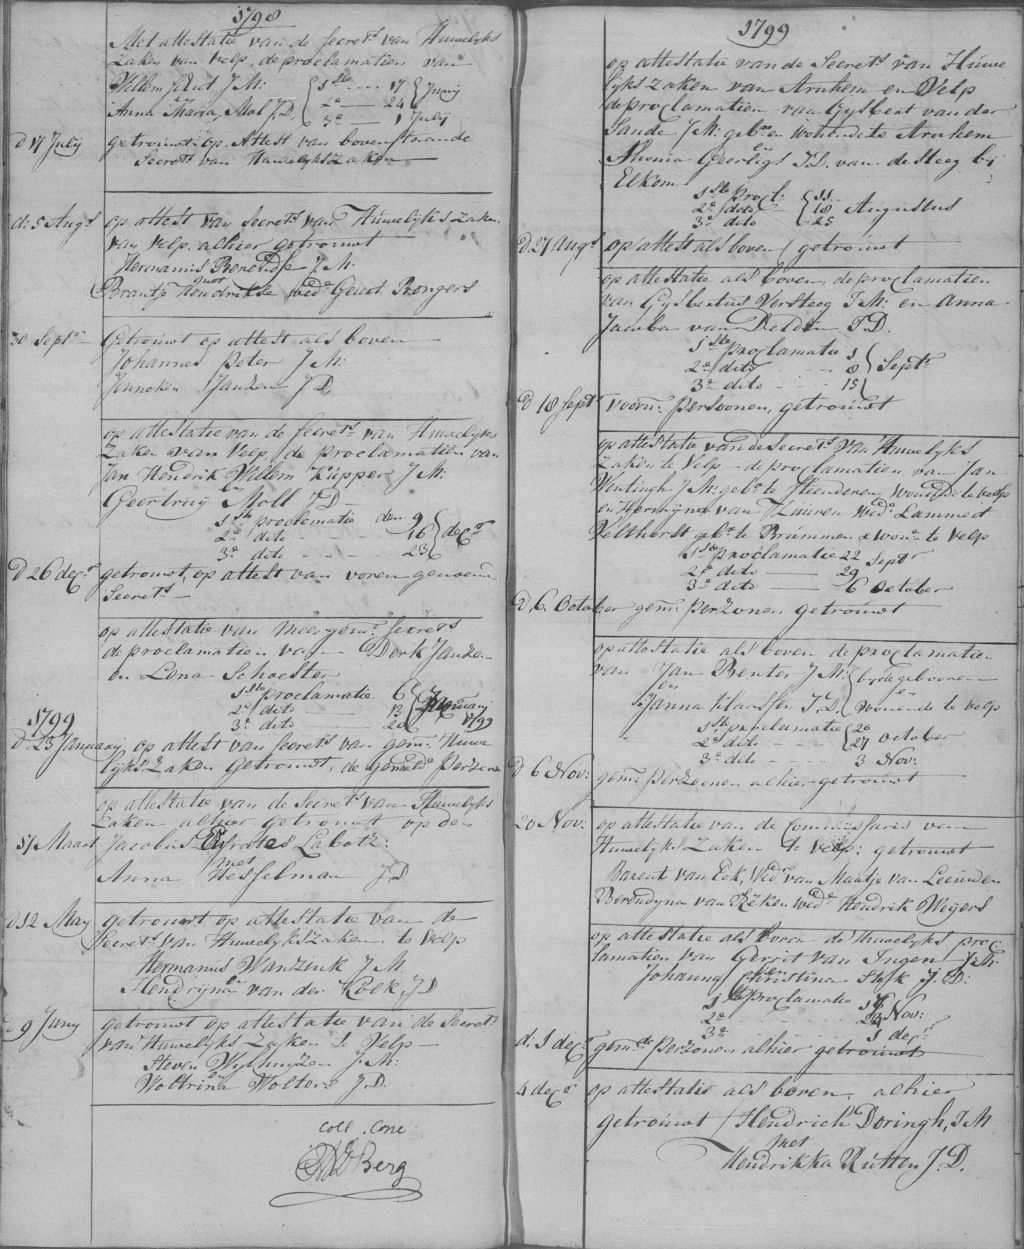 1798
Met attestatie van de Secrets van Huwelyks
Zaken van Velp, de proclamatien van
Willem J: M: 1ste 17 Juny
Anna Maria Mal J.D. 2e 24
3e 1 July
d 17 July getrouwt op Attest van bovenstaande
Secrets van Huwelykszaken
d: 5 Augs op attest van Secrets van Huwelyks zaken
van Velp alhier getrouwt
Hermanus Berendse J M.
met
Brantje Hendrikse wede Geurt Rongers
30 Septr Getrouwt op attest als boven
Johannes Peter J M:
Jenneken Janzen J D
op attestatie van de Secrets van Huwelyks
Zaken van Velp, de proclamatien van
Jan Hendrik Willem Kupper J M:
en
Geertruy Moll J D
1ste proclamatie den 9
2e dito 16 decr
3e dito 23
D 26 decr getrouwt, op attest van voren genoemde
Secrets
op attestatie van meergemr Secrets
de proclamatien van Derk Janzen
en Lena Schoester
1ste proclamatie 6
2e dito 13 January
3e dito 20 1799
1799
d 23 January op attest van Secrets van gem: Huwe
lyks Zaken Getrouwt, de gemelde perzone
op attestatie van de Secrets van Huwelyks
Zaken alhier getrouwt op den
31 Maart Jacobus Labots:
met
Anna Hesselman J D
d 12 May getrouwt op attestatie van de
Secrets van Huwelykszaken te Velp
Hermanus Wanzink J M
en
Hendrijna van der Kolk, J D
d 9 Juny getrouwt op attestatie van de Secrets
van Huwelyks Zaken te Velp
Steven Wylhuyzen J. M:
en
Woltrina Wolters J. D.
coll. conc
Berg
1799
op attestatie van de Secrets van Huwe
lyks zaken van Arnhem en Velp
de proclamatien van Gysbert van der
Sande J M: gebn en wonende te Arnhem
en
Geerligs J. D. van de Steeg bi
Elkom
1ste Procl: 11
2e dito 18 Augustus
3e dito 25
d 27 Augs op attest als boven getrouwt
op attestatie als boven, de proclamatien
van Gysbertus Versteeg J M: en Anna
Jacoba van Delden J D.
1ste proclamatie 1
2e dito 8 Septr
3e dito 15
d 18 Sept voorn: Persoonen, getrouwt
op attestatie van de Secrets van Huwelyks
Zaken te Velp de proclamatien van Jan
Wentingh J M: gebr te Steenderen, wonende te Velp
en Hermyne van wede Lammert
Velthorst gebr te Brummen & wonr te Velp
1ste proclamatie 22 Septr
2e dito 29
3e dito 6 October
d 6. October gem: Perzonen getrouwt
op attestatie als boven de proclamatie
van Jan Benter J M: beyde geboren
en en
Janna Klaassen J. D. wonende te Velp
1ste proclamatie 20
2e dito 27 October
3e dito 3 Nov:
d 6 Nov: gem: Perzonen alhier getrouwt
20 Nov: op attestatie van de Commissaris van
Huwelyks zaken te Velp: getrouwt
Barent van Eck, Wedr van Maatje van Leeuwen
en
Berendyna van Reken wede Hendrik Weyers
op attestatie als boven de Huwelyks proc
lamatien van Gerrit van Ingen J: M:
en
Johanna Christina J. D:
1ste proclamatie 17
2e 24 Nov:
3e 1 decr
d: 1 decr gemde Perzonen alhier getrouwt
4 decr op attestatie als boven, alhier
getrouwt Hendrich Doringh, J M
met
Hendrikka Rutten J. D.